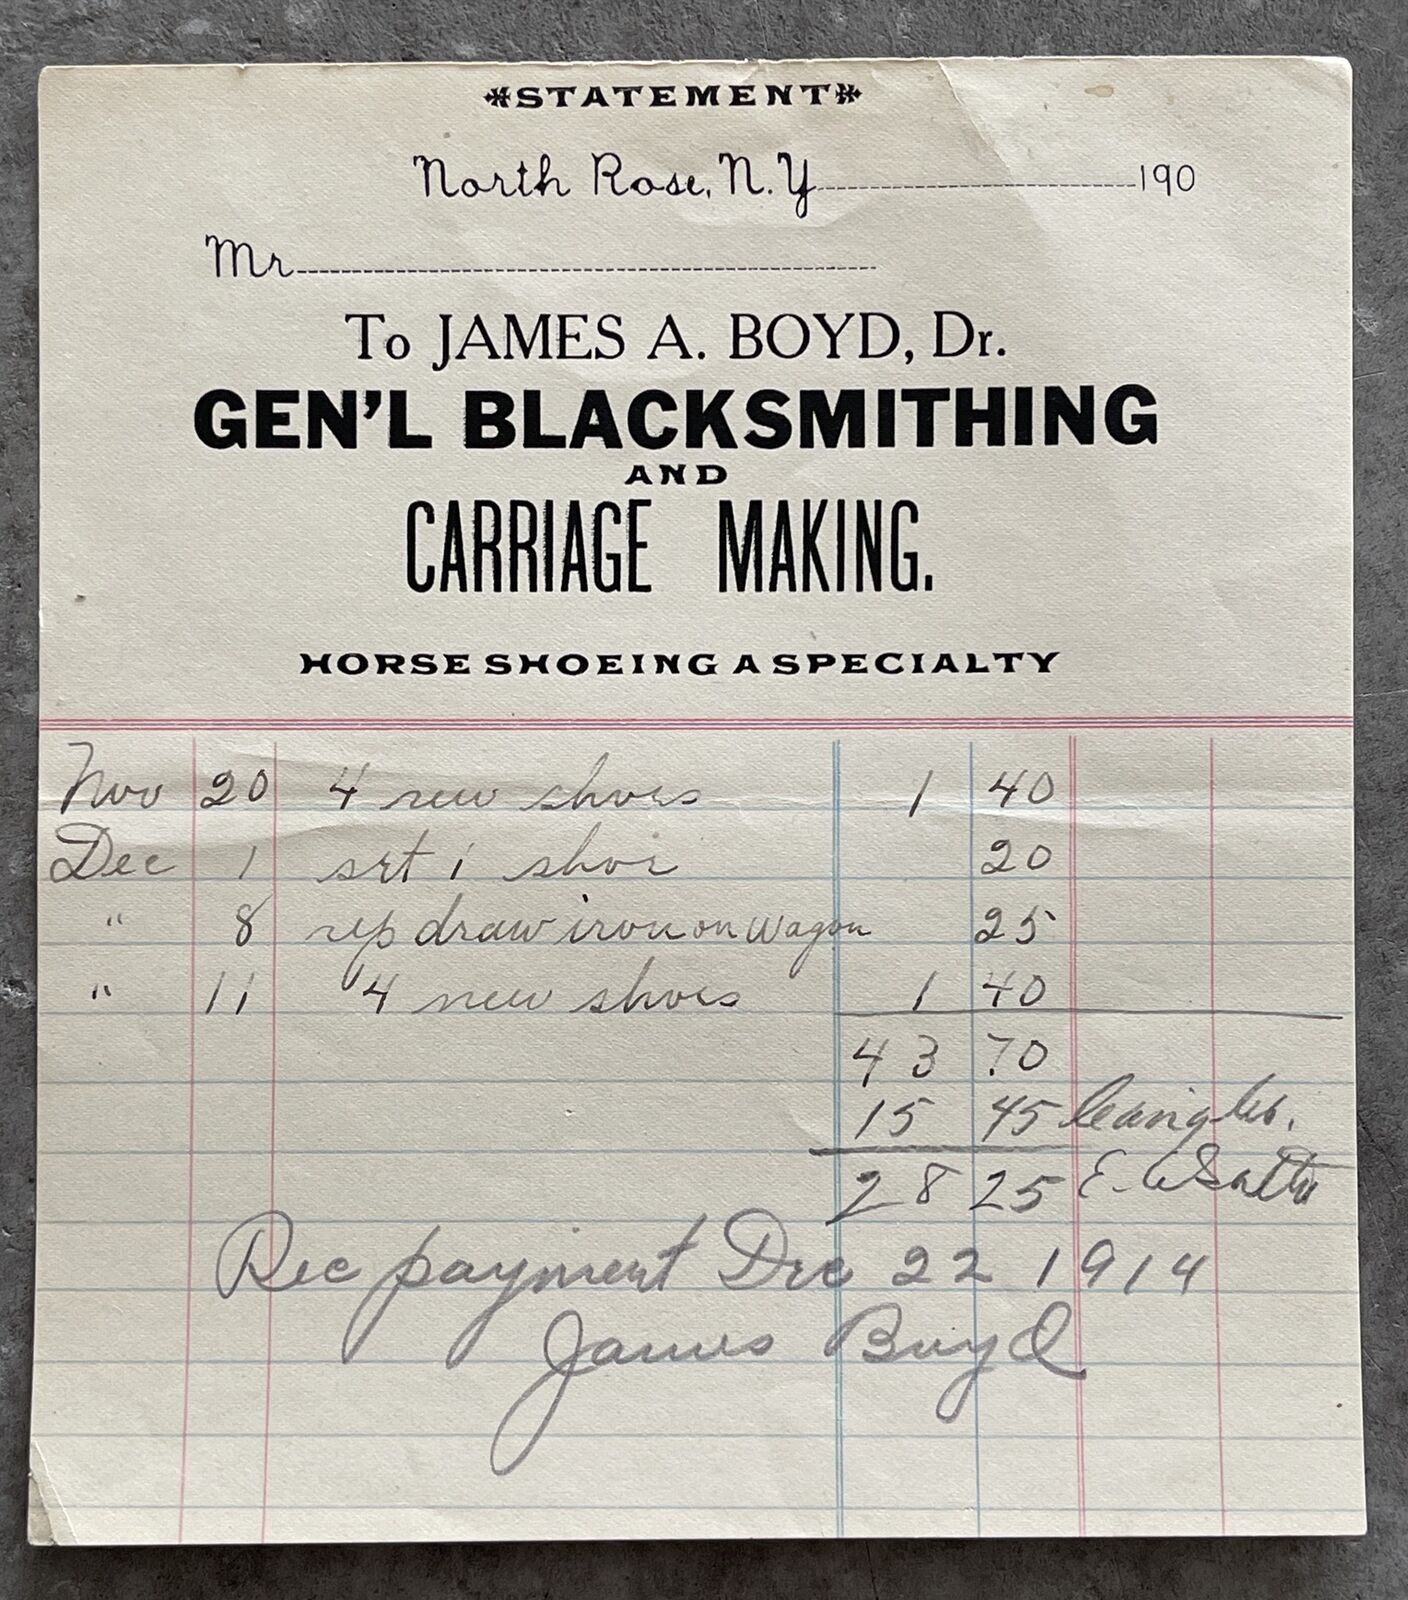 STATEMENT
North Rose, N.Y. 190
Mr
To JAMES A. BOYD, Dr.
GEN'L BLACKSMITHING
AND
CARRIAGE MAKING.
HORSE SHOEING A SPECIALTY
Nov 20 4 new shoes 1 40
Dec 1 set 1 shoe 20
" 8 rep draw iron on wagon 25
" 11 4 new shoes 1 40
43 70
15 45
28 25 E.
Rec payment Dec 22 1914
James Boyd